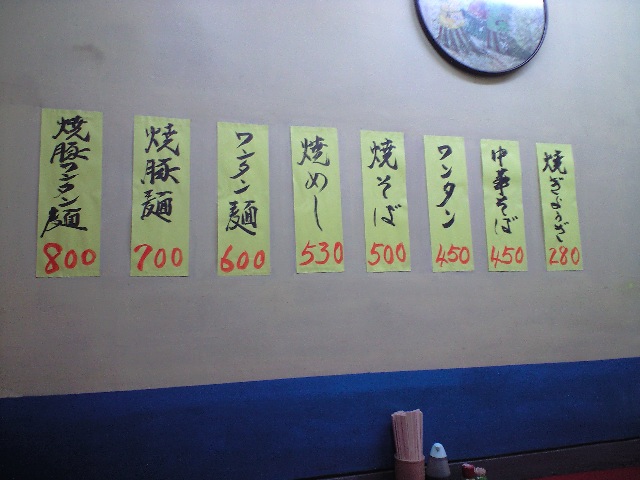 焼豚ワンタン麺
800
焼豚麺
700
ワンタン麺
600
焼めし
530
焼そば
500
ワンタン
450
中華そば
450
焼ぎょうざ
280